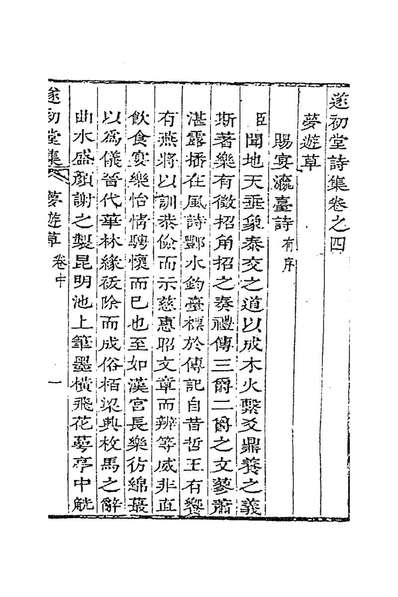 遂初堂詩集卷之四
夢遊草
賜宴瀛臺詩有序
臣聞地天垂象泰交之道以成木火繫爻鼎養之義
斯著樂有徵招角招之奏禮傳三爵二爵之文蓼蕭
湛露播在風詩酆水鈞臺標於傳記自昔哲王有饗
有燕將以訓恭儉而示慈惠昭文章而辨等威非直
飲食宴樂怡情騁懷而已也至如漢宮長樂仿綿蕞
以爲儀晉代華林緣祓除而成俗栢梁典枚馬之辭
曲水盛顏謝之製昆明池上筆墨橫飛花萼亭中觥
遂初堂集 夢遊草 卷中 一